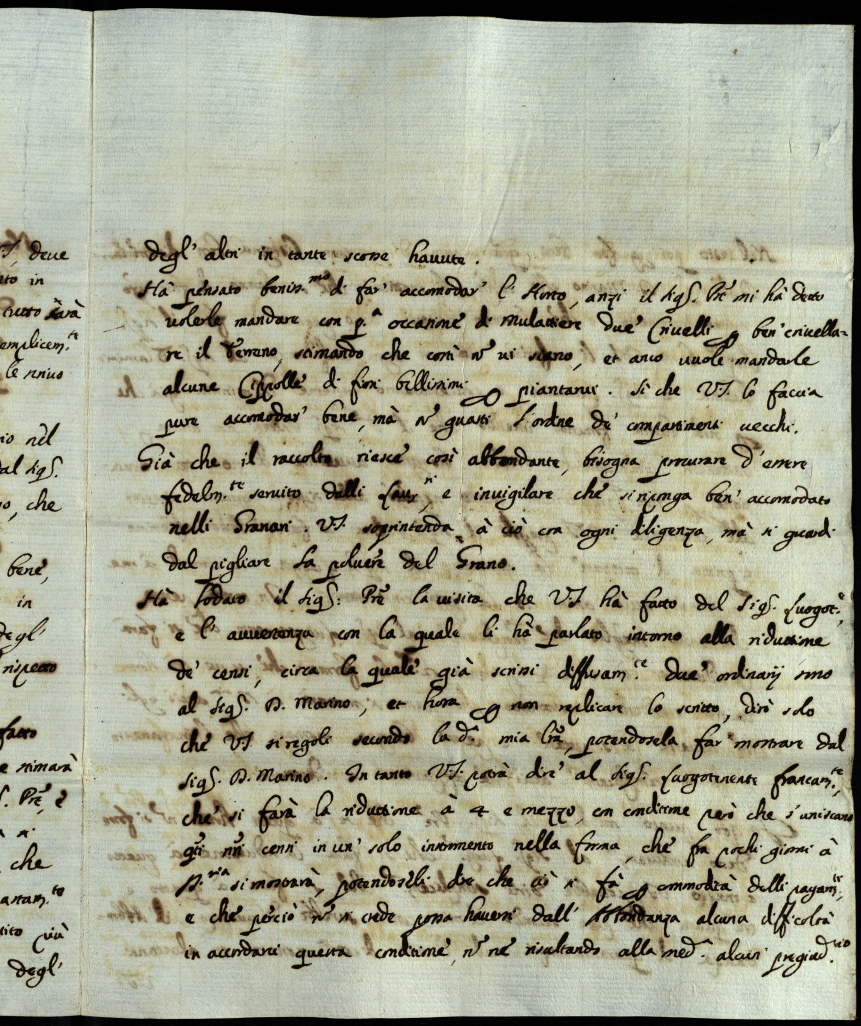 V.S. deve
to in
tutto sarà
emplicem.te
le scrivo
io nel
dal sig.
o, che
bene,
in
degl'
rispetto
fatto
e stimarà
S. Prè, è
à si
che
antam.te
tito più
degl'
degl' altri in tante scosse havute.
Hà pensato beniss.mo di far' accomodar' l'Horto, anzi il Sig.r Prè mi hà detto
volerle mandare con p.a occasione di Mulattiere due Crivelli per ben' crivella=
re il Terreno, stimando che costì nõ vi siano, et anco vuole mandarle
alcune Cipolle di fiori bellissimi per piantarvi. Si che V.S. lo faccia
pure accomodar' bene, mà nõ guasti l'ordine de' compartimenti vecchi.
Già che il raccolto riesce così abbondante, bisogna procurare d'essere
fedelm.te servito delli Lavr.ri, e invigilare che si riponga ben' accomodato
nelli Granari. V.S. soprintenda à ciò con ogni diligenza, mà si guardi
dal pigliare la polvere del Grano.
Hà lodato il Sig.r Prè la visita che V.S. hà fatto del Sig.r Luogot.e,
e l'avvertenza con la quale li hà parlato intorno alla riduttione
de' censi, circa la quale già scrissi diffusam.te due ordinarij sono
al Sig.r D. Marino, et hora per non replicare lo scritto, dirò solo
che V.S. si regoli secondo la d.a mia lrã, potendosela far' mostrare dal
Sig.r D. Marino. In tanto V.S. potrà dire al Sig.r Luogotenente francam.te,
che si farà la riduttione à 4 e mezzo, con conditione però che s'uniscano
q̃ti nr̃i censi in un' solo instromento nella forma, che frà pochi giorni à
si mostrarà, potendoseli dire che ciò si fà per commodità delli pagam.ti,
e che perciò nõ si crede possa haversi dall' alcuna difficoltà
in accordarci questa conditione, nõ ne risultando alla med.a alcun pregiud.tio